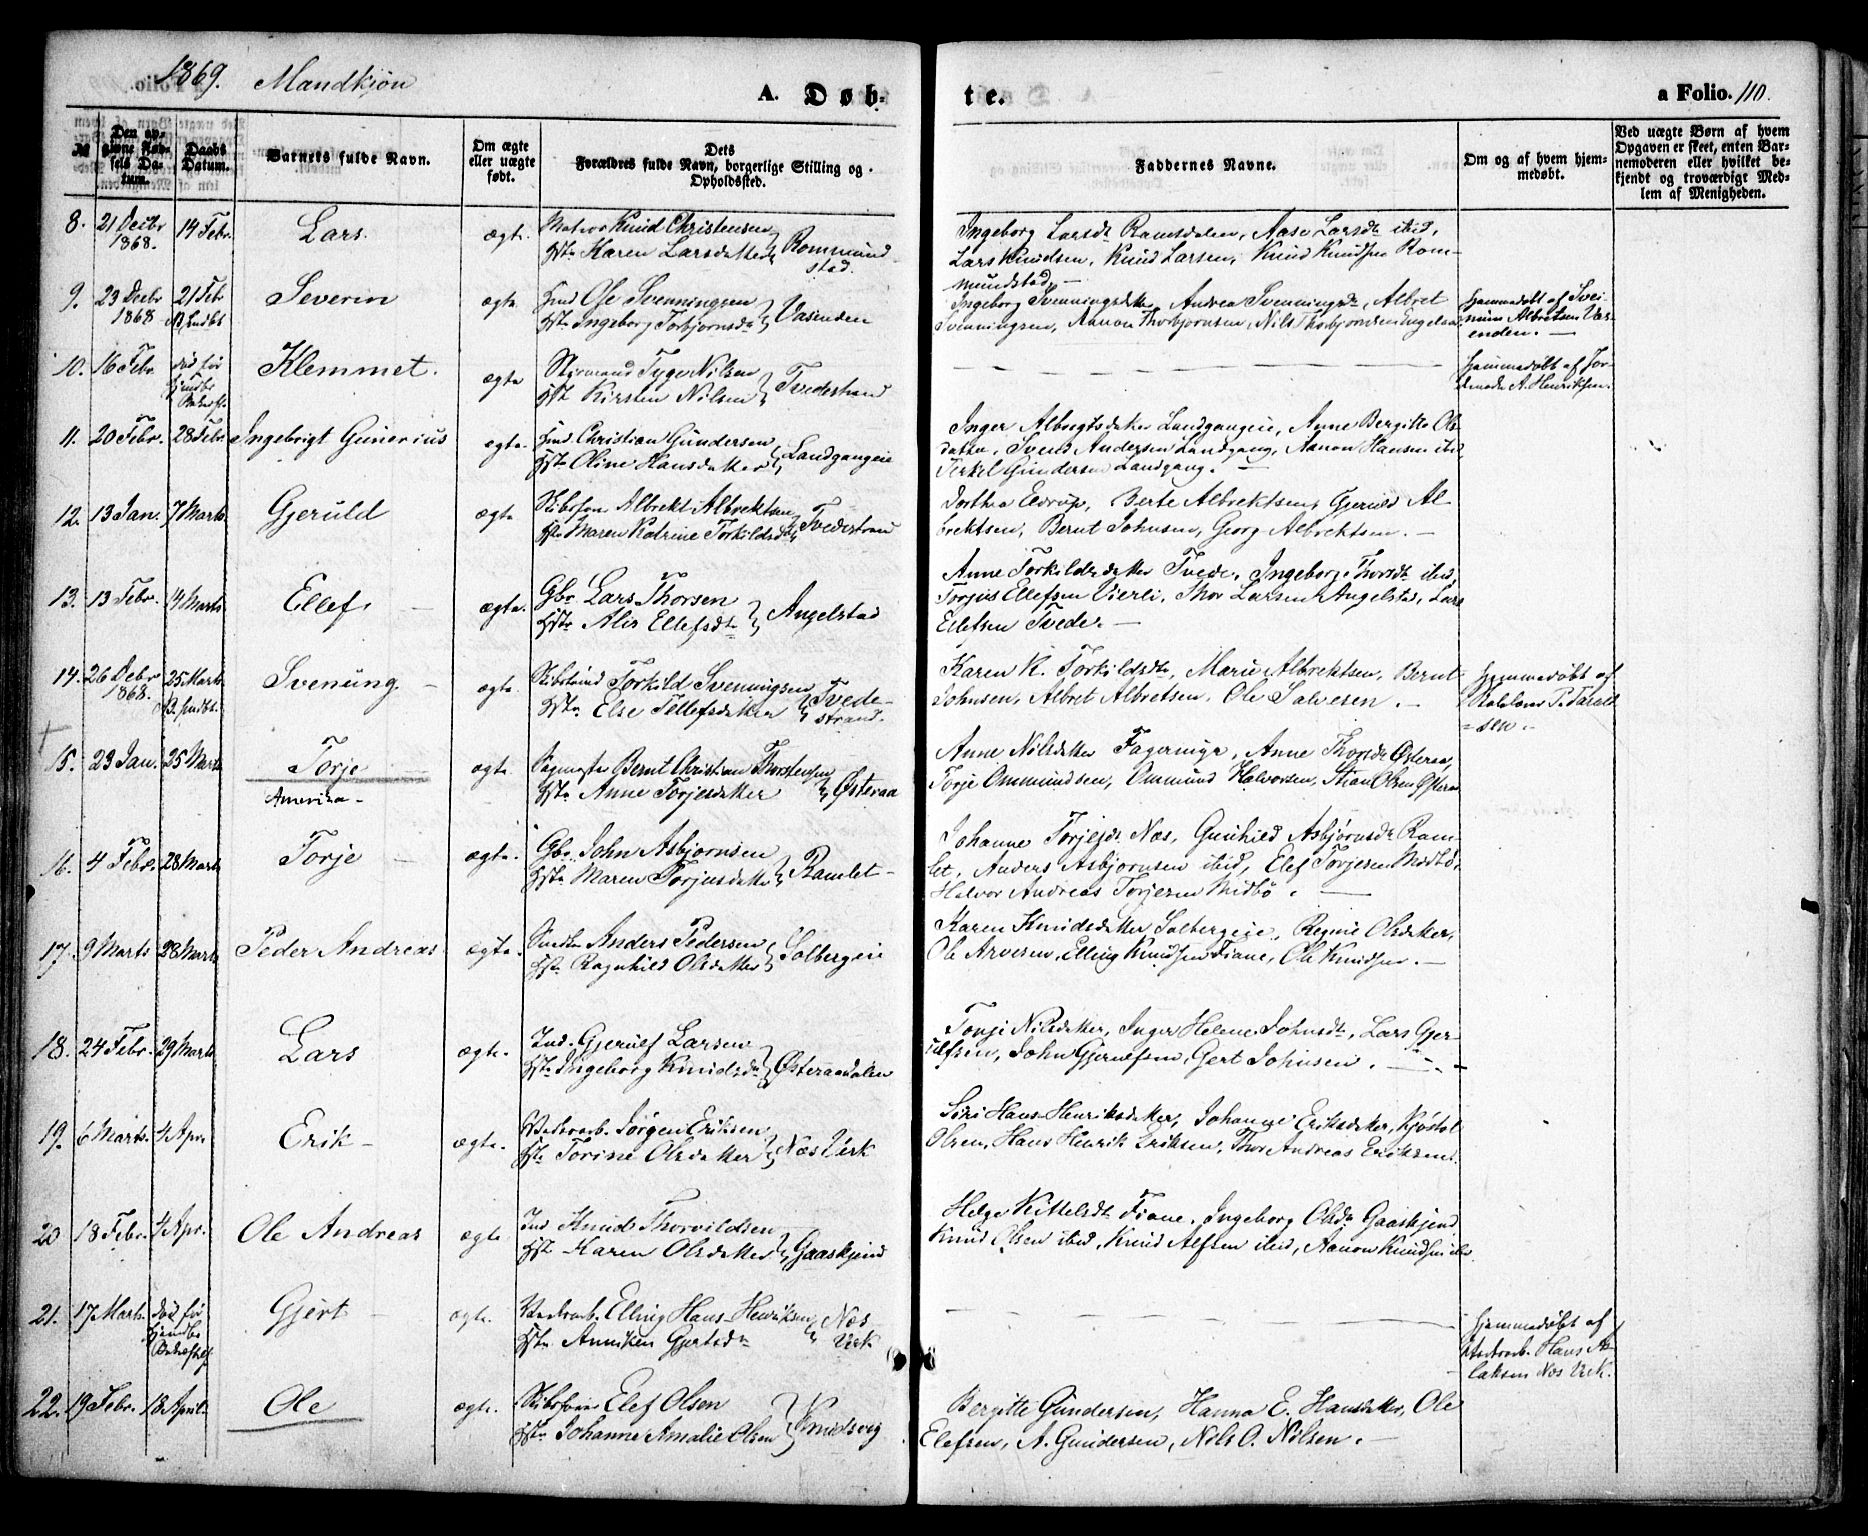 1869. Mandkjön
A. Døb-
te.
a Folio. 110.
№
Den op-
givne Fød-
sels Da-
tum.
Daabs
Datum.
Barnets fulde Navn.
Om ægte
eller uægte
født.
Dets
Forældres fulde Navn, borgerlige Stilling og
Opholdssted.
Faddernes Navne.
Om og af hvem hjem-
medøbt.
Ved uægte Børn af hvem
Opgaven er skeet, enten Bar-
nemoderen eller hvilket be-
kjendt og troværdigt Med-
lem af Menigheden.
8. 21 Decbr 1868. 14 Febr. Lars. ægte.
Knud Christensen
Karen Larsdatter
Rommund
stad.
Ingeborg Larsdt Ramsdalen, Aase Larsdt ibid,
Lars Knudsen, Knud Larsen, Knud Knudsen Rom-
mundstad, —
9. 23 Decbr 1868 21 Febr Severin ægte
Ole Svenningsen
Ingeborg Torbjørnsdt
Vasenden
Ingeborg Svenningsdatter, Andrea Svenningsdt, Albret
Svenningsen, Aanon Thorbjørnsen, Nils Thorbjørnsen
Hjemmedøbt af
Albretsen Vas-
enden. —
10. 16 Febr. død før Klemmet. ægte
Styrmand Tyge Nilsen
Kirsten Nilsen
Tvedestrand
Hjemmedøbt af Jor-
demoder A. Henriksen.
11. 20 Febr. 28 Febr. Ingebrigt Gunerius ægte.
Christian Gundersen
Oline Hansdatter
Landgangeie
Inger Landgangeie, Anne Bergitte Ols-
datter, Svend Andersen Landgang, Aanon Hansen ibid
Terkel Gundersen Landgang. —
12. 13 Jan. 7 Marts. Gjeruld ægte
Albrekt Albrektsen
Maren Katrine Torkildsdt
Tvedestrand
Dorthea Berte Albrektsen, Gjeruld Al-
brektsen, Bernt Johnsen, Georg Albrektsen. —
13. 13 Febr. 14 Marts Ellef. — ægte.
Gbr Lars Thorsen
Ellefsdt
Angelstad
Anne Torkildsdatter Tvede, Ingeborg Thorsdt ibid,
Torjus Ellefsen Vierli, Thor Larsen Angelstad, Lars
Ellefsen Tvede. —
14. 26 Debr 1868. 25 Marts Svenung — ægte.
Torkild Svenningsen
Else Tellefsdatter
Tvede-
strand.
Karen K. Torkildsdt, Marie Albrektsen, Bernt
Johnsen, Albret Albretsen, Ole Salvesen. —
Hjemmedøbt af
T. Tarald
=sen.
15. 23 Jan. 25 Marts Torje ægte
Amerika —
Bernt Christian Thorstensen
Anne Torjesdatter
Østeraa
Anne Nilsdatter Fagermyr, Anne Thorsdt Østeraa,
Torje Ommundsen, Ommund Halvorsen, Stian Olsen Østeraa
16. 4 Febr. 28 Marts Torje — ægte.
Gbr. John Asbjørnsen
Maren Torjusdatter
Ramlet —
Johanne Torjesdt Næs, Gunhild Asbjørnsdt Ram-
let, Anders Asbjørnsen ibid, Elef Torjesen Midbø,
Halvor Andreas Torjesen Midbø. —
17. 9 Marts 28 Marts Peder Andreas ægte.
Anders Pedersen
Ragnhild Olsdatter
Solbergeie
Karen Knudsdatter Solbergeie, Regine Olsdatter,
Ole Arvesen, Elling Knudsen Fiane, Ole Knudsen. —
18. 24 Febr. 29 Marts Lars ægte.
Ind. Gjerulf Larsen
Ingeborg Knudsdt
Østeraadalen
Tonje Nilsdatter, Inger Helene Johnsdt, Lars Gjer-
ulfsen, John Gjerulfsen, Gert Johnsen. —
19. 6 Marts. 4 Apr. Erik — ægte.
Jørgen Eriksen
Torine Olsdatter
Næs Verk
Hans Henriksdatter, Johanne Eriksdatter, Kjøstol
Olsen, Hans Henrik Eriksen, Thor Andreas Eriksen.
20 18 Febr. 4 Apr. Ole Andreas ægte.
Ind Knud Thorvildsen
Karen Olsdatter
Gaaskjend
Helge Kitteldt Fiane, Ingeborg Olsdt Gaaskjend
Knud Olsen ibid, Knud Alfsen ibid, Aanon Knudsen ibid
21. 17 Marts død før Gjert — ægte.
Elling Hans Henriksen
Anniken Gjertsdt
Næs
Verk
Hjemmedøbt af
Hans As-
laksen Næs Verk.
22. 19 Febr. 18 April. Ole ægte.
Elef Olsen
Johanne Amalie Olsen
Knudsvig
Bergitte Gundersen, Hanna E. Hansdatter, Ole
Elefsen, A. Gundersen, Nils O. Nilsen. —